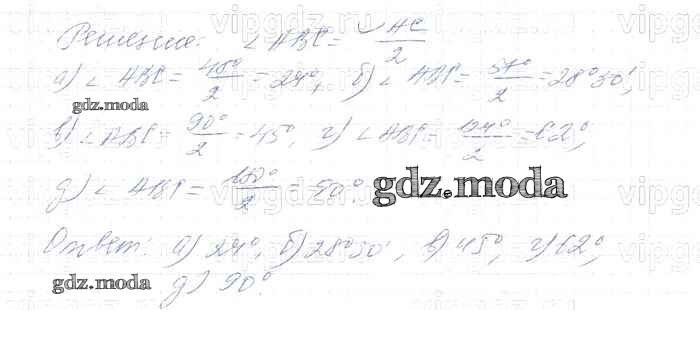 Решение: ∠ABC = ◡AC/2
а) ∠ABC = 48°/2 = 24°, б) ∠ABC = 57°/2 = 28°30',
gdz.moda
в) ∠ABC = 90°/2 = 45°, г) ∠ABC = 124°/2 = 62°,
д) ∠ABC = 180°/2 = 90°.
gdz.moda
Ответ: а) 24°, б) 28°30', в) 45°, г) 62°,
gdz.moda
д) 90°.